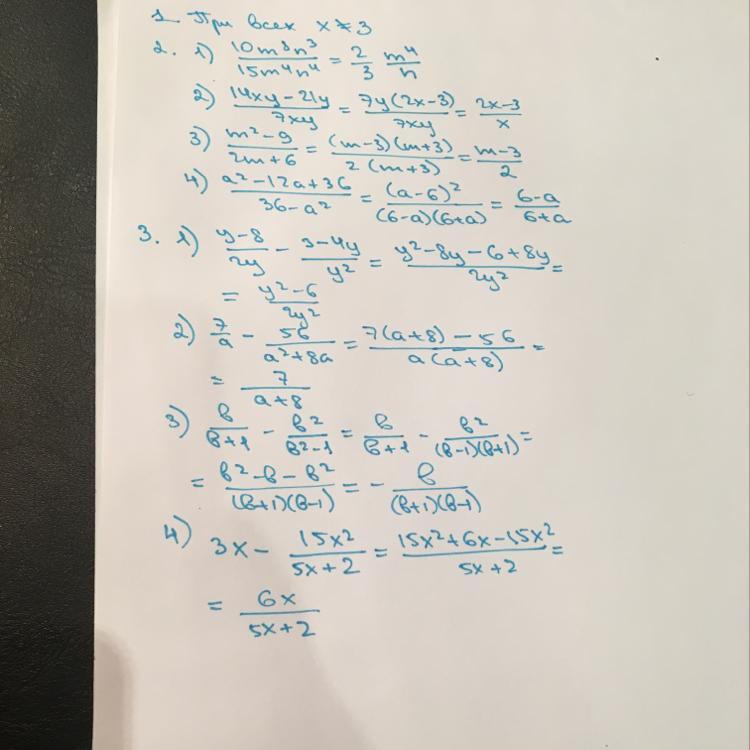 1. При всех x ≠ 3
2. 1) 10m⁸n³/15m⁴n⁴ = 2/3 m⁴/n
2) 14xy-21y/7xy = 7y(2x-3)/7xy = 2x-3/x
3) m²-9/2m+6 = (m-3)(m+3)/2(m+3) = m-3/2
4) a²-12a+36/36-a² = (a-6)²/(6-a)(6+a) = 6-a/6+a
3. 1) y-8/2y - 3-4y/y² = y²-8y-6+8y/2y² =
= y²-6/2y²
2) 7/a - 56/a²+8a = 7(a+8)-56/a(a+8) =
= 7/a+8
3) b/b+1 - b²/b²-1 = b/b+1 - b²/(b-1)(b+1) =
= b²-b-b²/(b+1)(b-1) = - b/(b+1)(b-1)
4) 3x - 15x²/5x+2 = 15x²+6x-15x²/5x+2 =
= 6x/5x+2